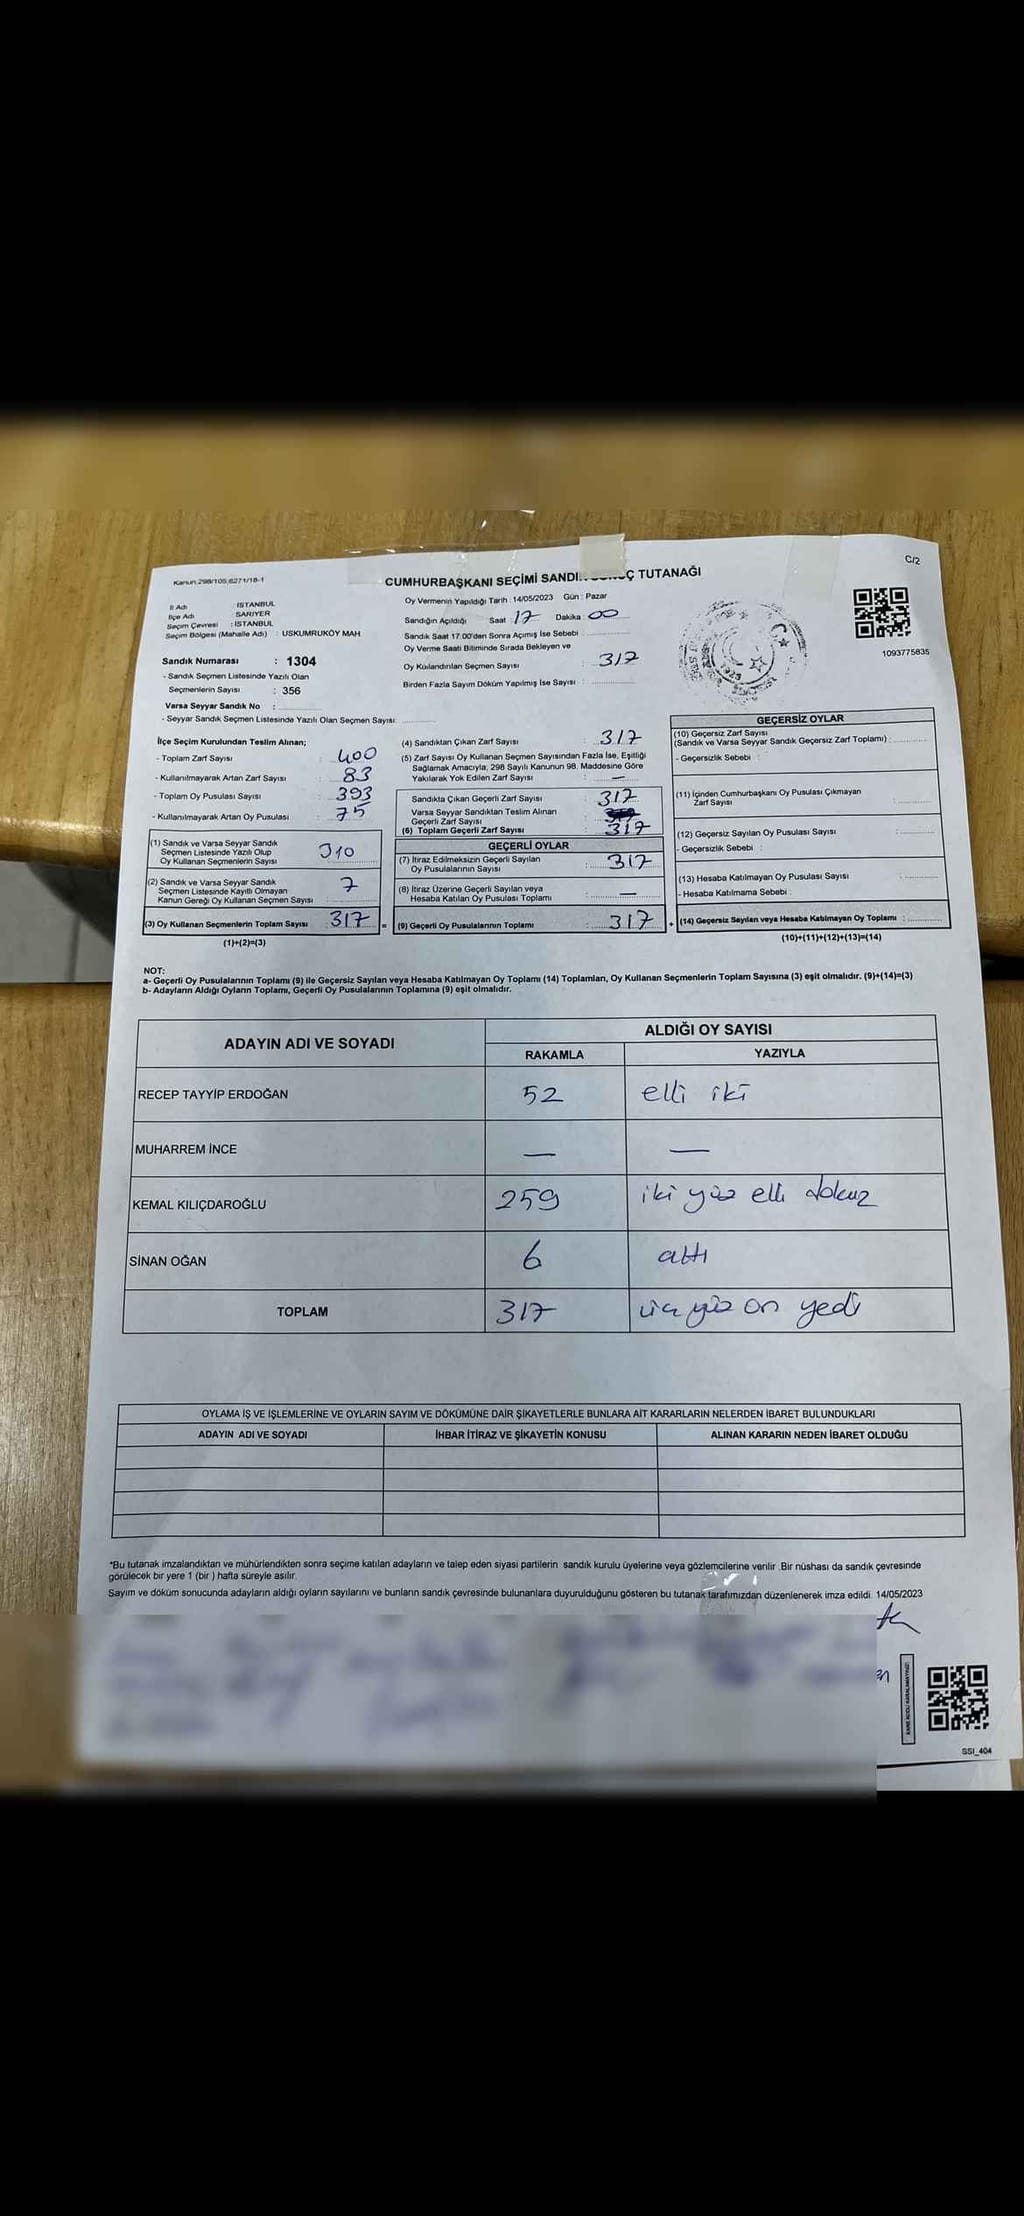 C/2
Kanun 298/105,6271/18-1
CUMHURBAŞKANI SEÇİMİ TUTANAĞI
İl Adı : İSTANBUL
İlçe Adı : SARIYER
Seçim Çevresi : İSTANBUL
Seçim Bölgesi (Mahalle Adı) : USKUMRUKÖY MAH
Sandık Numarası : 1304
- Sandık Seçmen Listesinde Yazılı Olan
Seçmenlerin Sayısı : 356
Varsa Seyyar Sandık No :
- Seyyar Sandık Seçmen Listesinde Yazılı Olan Seçmen Sayısı
Oy Vermenin Yapıldığı Tarih : 14/05/2023 Gün : Pazar
Sandığın Açıldığı Saat 17 Dakika : 00
Sandık Saat 17.00'dan Sonra Açmış İse Sebebi :
Oy Verme Saati Bitiminde Sırada Bekleyen ve
Oy Kullandırılan Seçmen Sayısı : 317
Birden Fazla Sayım Döküm Yapılmış İse Sayısı :
1093775835
İlçe Seçim Kurulundan Teslim Alınan;
- Toplam Zarf Sayısı : 400
- Kullanılmayarak Artan Zarf Sayısı : 83
- Toplam Oy Pusulası Sayısı : 393
- Kullanılmayarak Artan Oy Pusulası : 75
(1) Sandık ve Varsa Seyyar Sandık
Seçmen Listesinde Yazılı Olup
Oy Kullanan Seçmenlerin Sayısı 310
(2) Sandık ve Varsa Seyyar Sandık
Seçmen Listesinde Kayıtlı Olmayan
Kanun Gereği Oy Kullanan Seçmen Sayısı : 7
(3) Oy Kullanan Seçmenlerin Toplam Sayısı : 317 =
(1)+(2)=(3)
(4) Sandıktan Çıkan Zarf Sayısı : 317
(5) Zarf Sayısı Oy Kullanan Seçmen Sayısından Fazla İse, Eşitliği
Sağlamak Amacıyla; 298 Sayılı Kanunun 98. Maddesine Göre
Yakılarak Yok Edilen Zarf Sayısı : —
Sandıkta Çıkan Geçerli Zarf Sayısı : 317
Varsa Seyyar Sandıktan Teslim Alınan
Geçerli Zarf Sayısı :
(6) Toplam Geçerli Zarf Sayısı : 317
GEÇERLİ OYLAR
(7) İtiraz Edilmeksizin Geçerli Sayılan
Oy Pusulalarının Sayısı : 317
(8) İtiraz Üzerine Geçerli Sayılan veya
Hesaba Katılan Oy Pusulası Toplamı : —
(9) Geçerli Oy Pusulalarının Toplamı : 317 +
GEÇERSİZ OYLAR
(10) Geçersiz Zarf Sayısı
(Sandık ve Varsa Seyyar Sandık Geçersiz Zarf Toplamı) :
- Geçersizlik Sebebi :
(11) İçinden Cumhurbaşkanı Oy Pusulası Çıkmayan
Zarf Sayısı :
(12) Geçersiz Sayılan Oy Pusulası Sayısı :
- Geçersizlik Sebebi :
(13) Hesaba Katılmayan Oy Pusulası Sayısı :
- Hesaba Katılmama Sebebi :
(14) Geçersiz Sayılan veya Hesaba Katılmayan Oy Toplamı :
(10)+(11)+(12)+(13)=(14)
NOT:
a- Geçerli Oy Pusulalarının Toplamı (9) ile Geçersiz Sayılan veya Hesaba Katılmayan Oy Toplamı (14) Toplamları, Oy Kullanan Seçmenlerin Toplam Sayısına (3) eşit olmalıdır. (9)+(14)=(3)
b- Adayların Aldığı Oyların Toplamı, Geçerli Oy Pusulalarının Toplamına (9) eşit olmalıdır.
ADAYIN ADI VE SOYADI ALDIĞI OY SAYISI
RAKAMLA YAZIYLA
RECEP TAYYİP ERDOĞAN 52 elli iki
MUHARREM İNCE — —
KEMAL KILIÇDAROĞLU 259 iki yüz elli dokuz
SİNAN OĞAN 6 altı
TOPLAM 317 üç yüz on yedi
OYLAMA İŞ VE İŞLEMLERİNE VE OYLARIN SAYIM VE DÖKÜMÜNE DAİR ŞİKAYETLERLE BUNLARA AİT KARARLARIN NELERDEN İBARET BULUNDUKLARI
ADAYIN ADI VE SOYADI İHBAR İTİRAZ VE ŞİKAYETİN KONUSU ALINAN KARARIN NEDEN İBARET OLDUĞU
*Bu tutanak imzalandıktan ve mühürlendikten sonra seçime katılan adayların ve talep eden siyasi partilerin sandık kurulu üyelerine veya gözlemcilerine verilir. Bir nüshası da sandık çevresinde
görülecek bir yere 1 (bir ) hafta süreyle asılır.
Sayım ve döküm sonucunda adayların aldığı oyların sayılarını ve bunların sandık çevresinde bulunanlara duyurulduğunu gösteren bu tutanak tarafımızdan düzenlenerek imza edildi. 14/05/2023
SSI_404